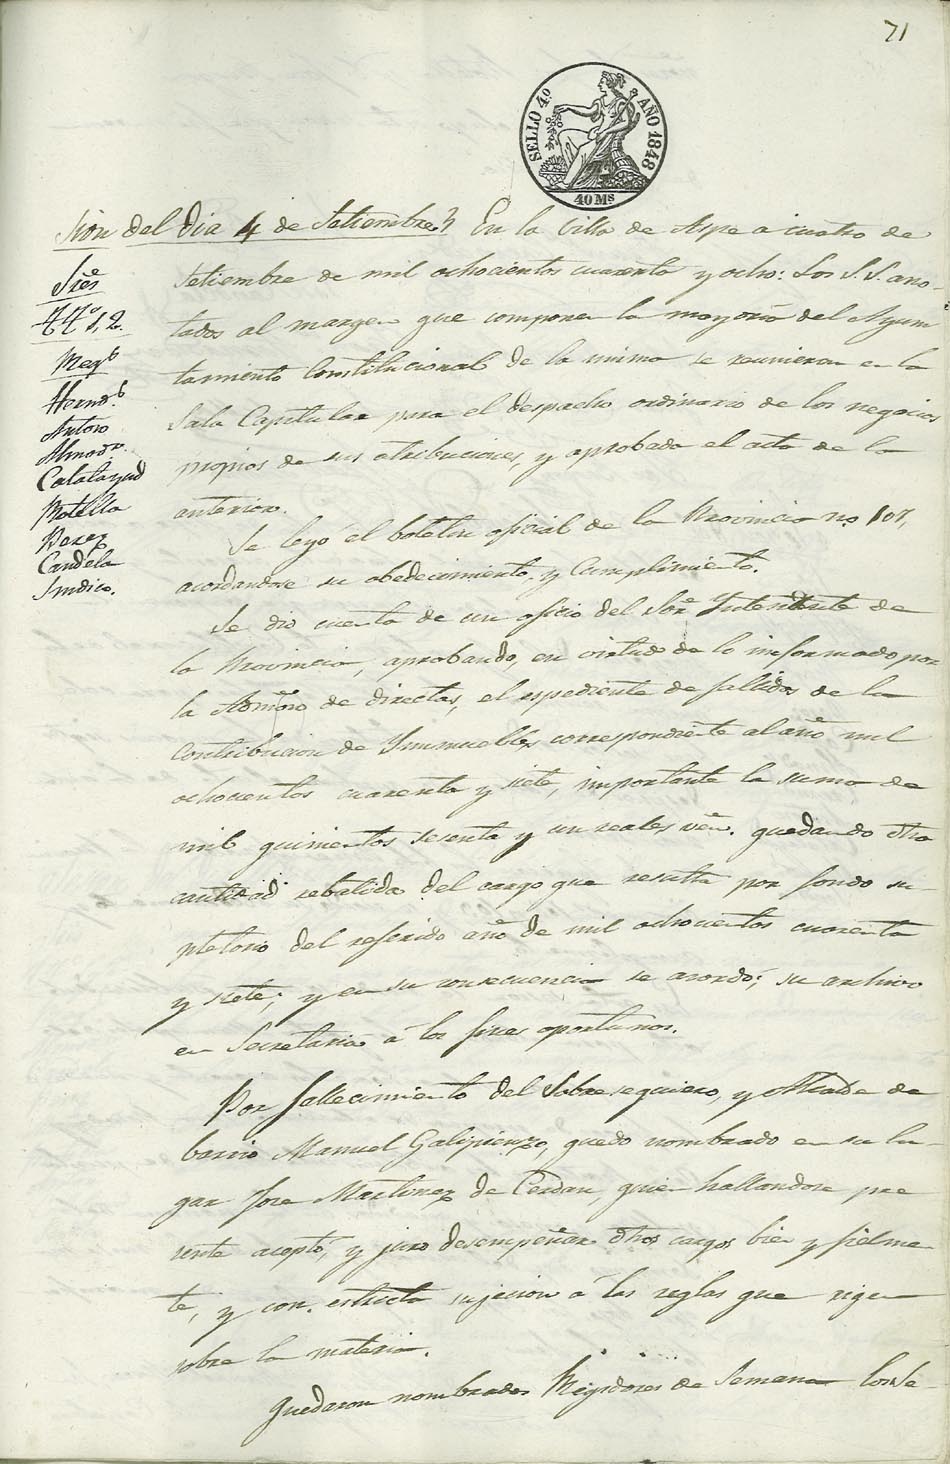 71
SELLO 4.º AÑO 1848
40 Ms
sion del dia 4 de Setiembre En la Villa de Aspe a cuatro de
Sres
Setiembre de mil ochocientos cuarenta y ocho: Los S.S. ano-
1, 2.
tados al margen que componen la mayoria del Ayun
tamiento Constitucional de la misma se reunieron en la
Hernd.
Sala Capitular para el despacho ordinario de los negocios
Antón
Almodr.
propios de sus atribuciones, y aprobada el acta de la
Calatayud
anterior.
Motilla
Se leyó el boletin oficial de la Provincia nº 107,
Perez
Candela
acordandose su obedecimiento y Cumplimiento.
Sindico.
Se dio cuenta de un oficio del Sor Intendente de
la Provincia, aprobando, en virtud de lo informado por
la Admon de directas, el espediente de fallidos de la
Contribucion de Ynmuebles correspondiente al año mil
ochocientos cuarenta y siete, importante la suma de
mil quinientos sesenta y un reales von. quedando dha
cantidad rebatida del cargo que resulta por fondo su-
pletorio del referido año de mil ochocientos cuarenta
y siete; y en su consecuencia se acordó; su archivo
en Secretaria á los fines oportunos.
Por fallecimiento del Sobresequiero, y Alcalde de
barrio Manuel Galipienzo, quedo nombrado en su lu-
gar Jose Martinez de Cerdan, quien hallandose pre
sente aceptó, y juro desempeñar dhos cargos bien y fielmen
te, y con estricta sujecion á las reglas que rigen
sobre la materia.
Quedaron nombrados Regidores de Semana los Se-